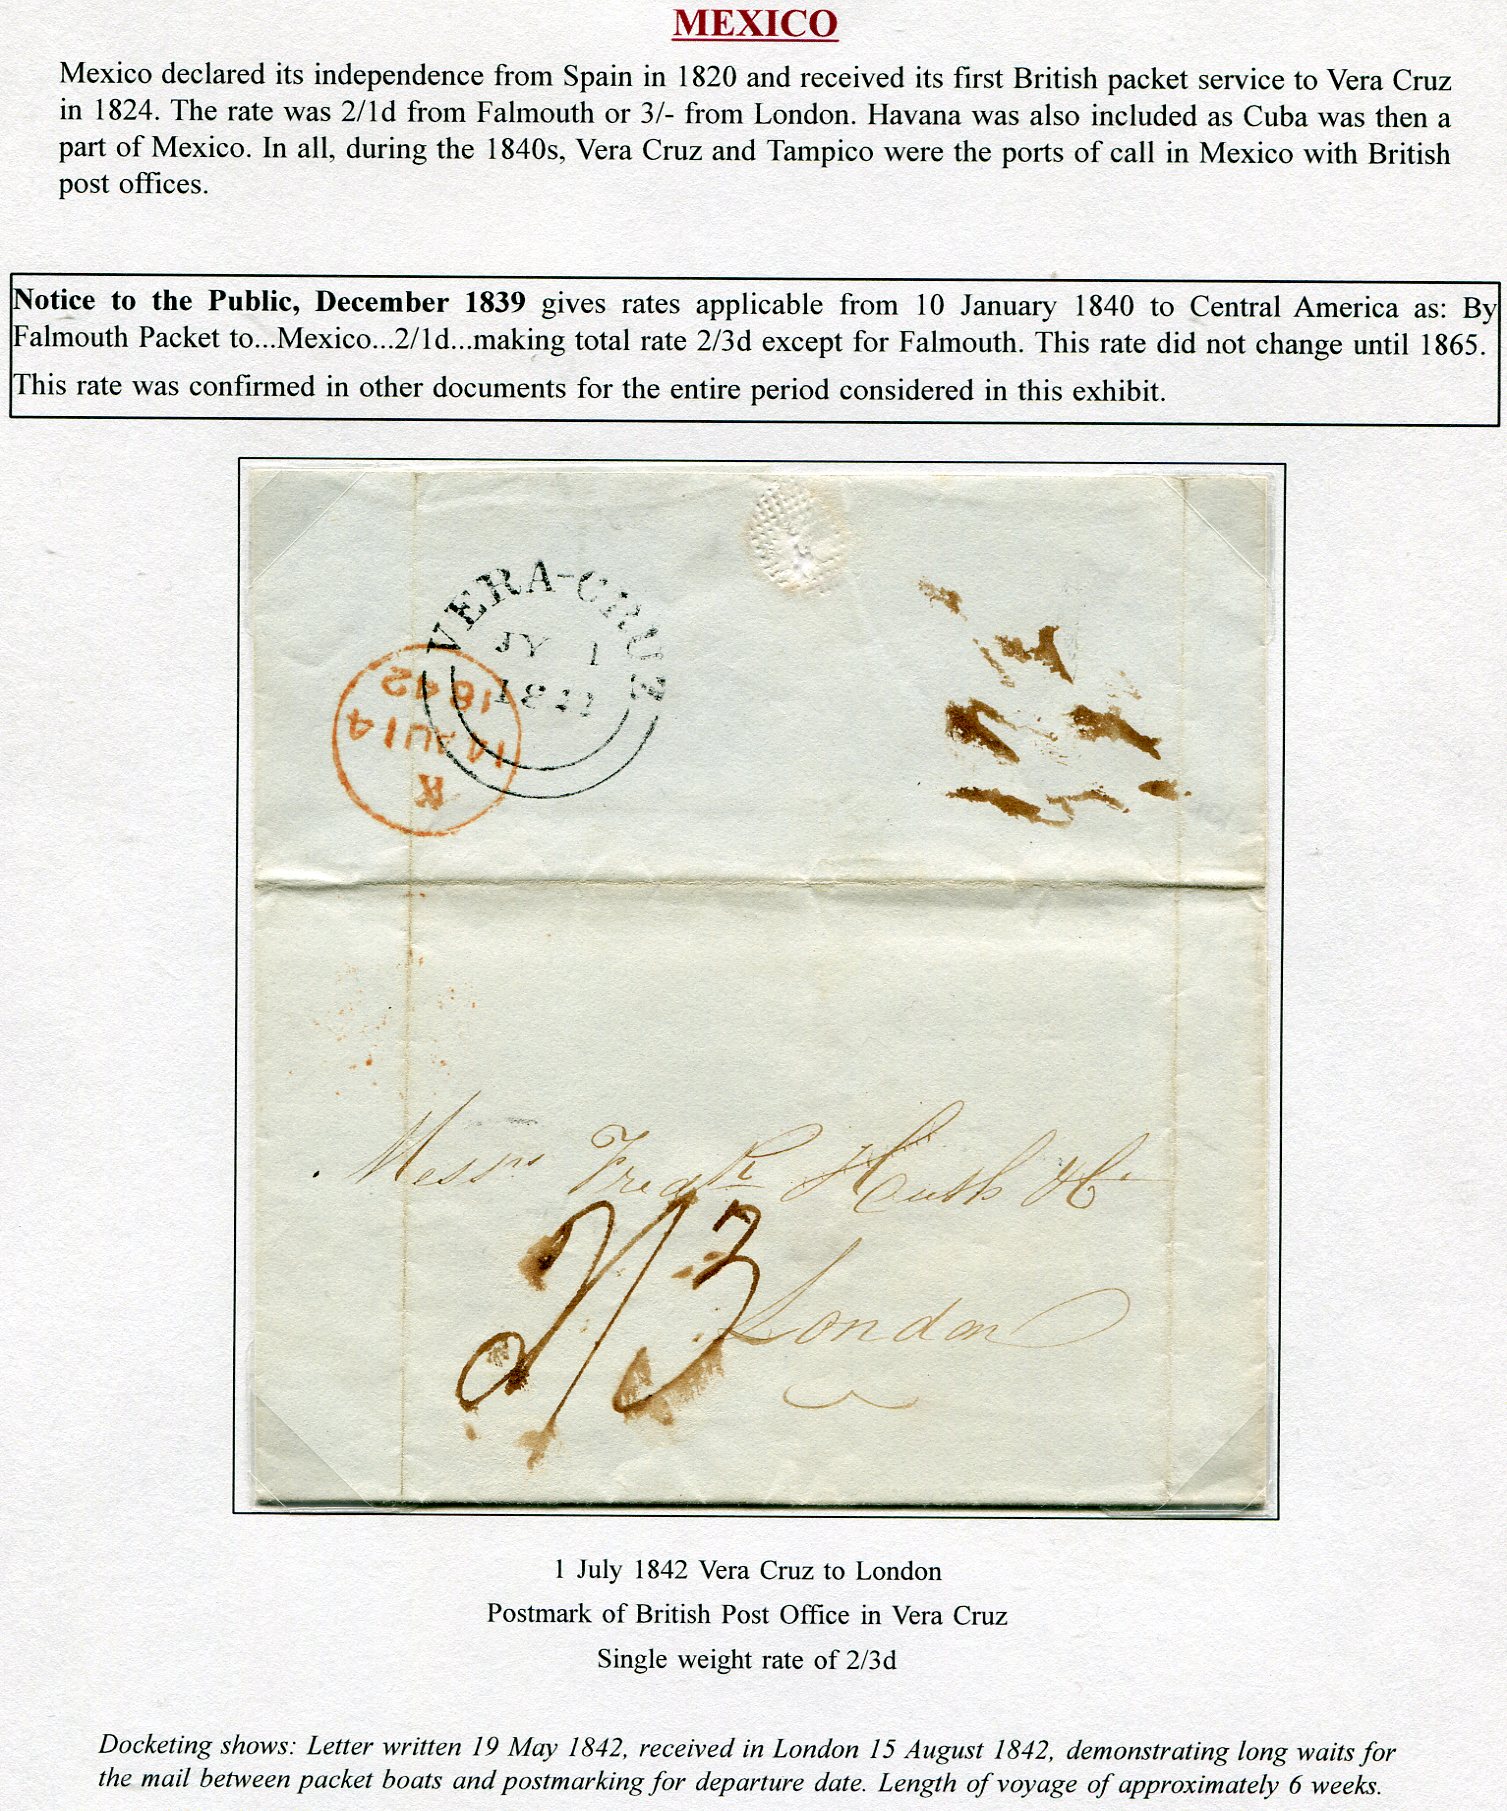 MEXICO
Mexico declared its independence from Spain in 1820 and received its first British packet service to Vera Cruz
in 1824. The rate was 2/1d from Falmouth or 3/- from London. Havana was also included as Cuba was then a
part of Mexico. In all, during the 1840s, Vera Cruz and Tampico were the ports of call in Mexico with British
post offices.
Notice to the Public, December 1839 gives rates applicable from 10 January 1840 to Central America as: By
Falmouth Packet to...Mexico...2/1d...making total rate 2/3d except for Falmouth. This rate did not change until 1865.
This rate was confirmed in other documents for the entire period considered in this exhibit.
VERA-CRUZ
JY 1
K
14 AU 14
1842
Messrs Fredk Huth & Co
2/3
London
1 July 1842 Vera Cruz to London
Postmark of British Post Office in Vera Cruz
Single weight rate of 2/3d
Docketing shows: Letter written 19 May 1842, received in London 15 August 1842, demonstrating long waits for
the mail between packet boats and postmarking for departure date. Length of voyage of approximately 6 weeks.